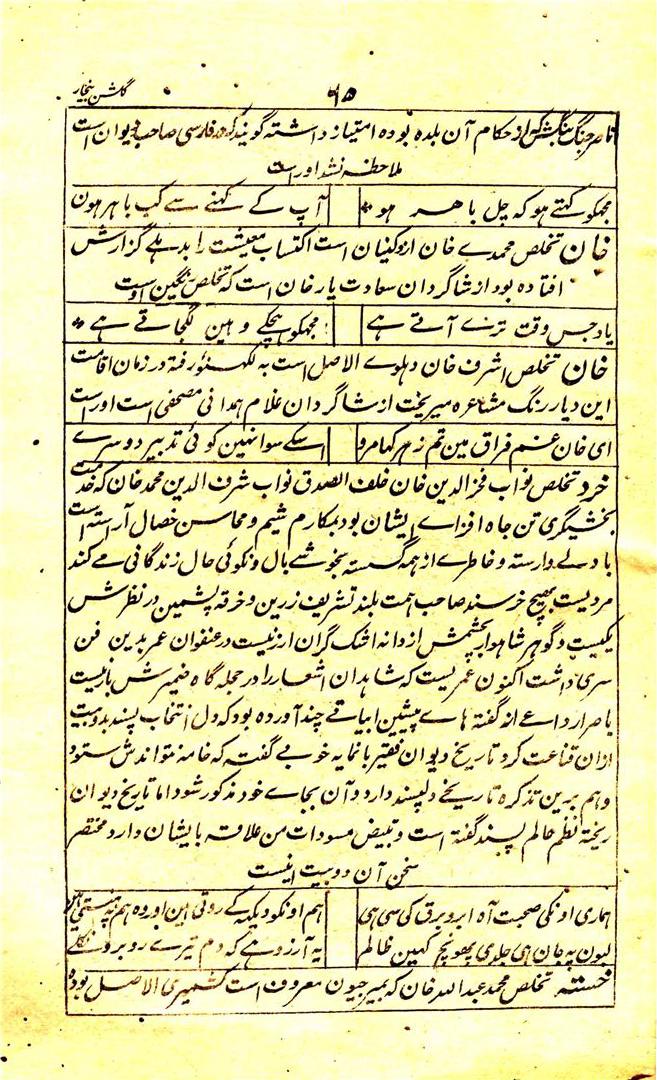 گلشن بیخار
۶۵
ناصر جنگ بنگش کہ از حکام آن بلدہ بودہ امتیاز داشتہ گویند کہ در فارسی صاحب دیوان است
ملاحظہ نشد اوراست
مجھکو کہتے ہو کہ چل باہر ہو آپ کے کہنے سے کب باہر ہون
خان تخلص محمدے خان از وکنیان است اکتساب معیشت را بدہلے گزارش
افتادہ بود از شاگردان سعادت یار خان است کہ تخلص رنگین اوست
یاد جس وقت ترے آتے ہے مجھکو ہچکے وہین لگجاتے ہے
خان تخلص اشرف خان دہلوے الاصل است بہ لکہنؤ رفتہ در زمان اقامت
این دیار رنگ مشاعرہ میریخت از شاگردان غلام ہمدانی مصحفی است اوراست
ای خان غم فراق مین تم زہر کہا مرو اسکے سوا نہین کوئی تدبیر دوسرے
خرد تخلص نواب فخر الدین خان خلف الصدق نواب شرف الدین محمد خان کہ خدمت
بخشیگری تن جاہ افزاے ایشان بود بمکارم شیم و محاسن خصال آراستہ است
با دلے وارستہ و خاطرے از ہمہ گسستہ بخوشے بال و نکوئی حال زندگانی مے کند
مردیست بہیچ خرسند صاحب ہمت بلند تشریف زرین و خرقہ پشمین در نظرش
یکیست و گوہر شاہوار بچشمش از دانہ اشک گران ارز نیست در عنفوان عمر بدین فن
سری داشت اکنون عمریست کہ شاہدان اشعار را در حجلہ گاہ ضمیرش بار نیست
باصرار داعے انہ گفتہ ہاے پیشین ابیاتے چند آوردہ بود کہ دل انتخاب پسند بدو بیت
ازان قناعت کرد تاریخ دیوان فقیر بانمایہ خوبے گفتہ کہ خامہ نتواندش ستود
و ہم برین تذکرہ تاریخے دلپسند دارد و آن بجاے خود مذکور شود اما تاریخ دیوان
ریختہ نظم عالم پسند گفتہ است و تبیض مسودات من علاقہ بایشان دارد مختصر
سخن آن دو بیت اینست
ہماری اونکی صحبت آہ ابر و برق کی سی ہی ہم اونکو دیکہہ کے روتی ہین اور وہ ہم پہ ہنستی ہین
لبون پہ جان ہی جلدی پہونچ کہین ظالم یہ آرزو ہے کہ دم تیرے روبرو نکلے
خستہ تخلص محمد عبد اللہ خان کہ بمیر جیون معروف است کشمیری الاصل بودہ